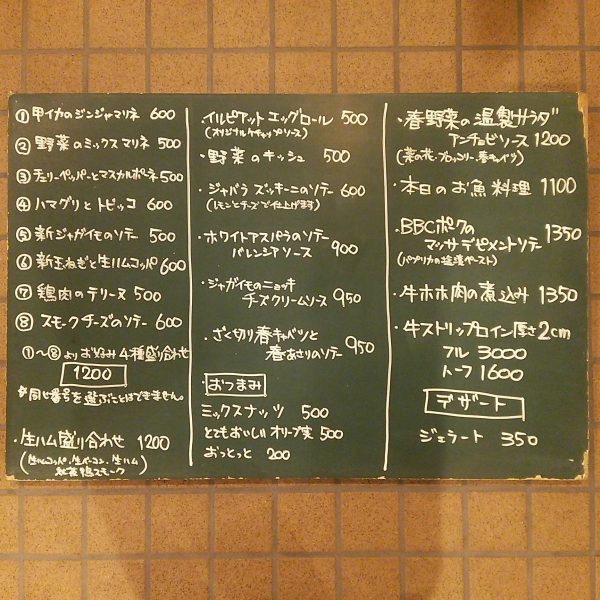 ①甲イカのジンジャマリネ 600
②野菜のミックスマリネ 500
③チェリーペッパーとマスカルポーネ 500
④ハマグリとトビッコ 600
⑤新ジャガイモのソテー 500
⑥新玉ねぎと生ハムコッパ 600
⑦鶏肉のテリーヌ 500
⑧スモークチーズのソテー 600
①〜⑧よりお好み4種盛り合わせ
1200
同じ番号を選ぶことはできません。
・生ハム盛り合わせ 1200
(生ハムコッパ、生ベーコン、生ハム
鴨スモーク)
・イルピアット エッグロール 500
(オリジナルケチャップソース)
・野菜のキッシュ 500
・ジャバラ ズッキーニのソテー 600
(レモンとチーズで仕上げます)
・ホワイトアスパラのソテー
バレンシアソース 900
・ジャガイモのニョッキ
チーズクリームソース 950
・ざく切り春キャベツと
春あさりのソテー 950
・おつまみ
ミックスナッツ 500
とてもおいしいオリーブ実 500
おっとっと 200
・春野菜の温製サラダ
アンチョビソース 1200
(菜の花・ブロッコリー・春キャベツ)
・本日のお魚料理 1100
・BBCポークの
マッサデピメントソテー 1350
(パプリカの塩漬ペースト)
・牛ホホ肉の煮込み 1350
・牛ストリップロイン厚さ2cm
フル 3000
ハーフ 1600
デザート
ジェラート 350